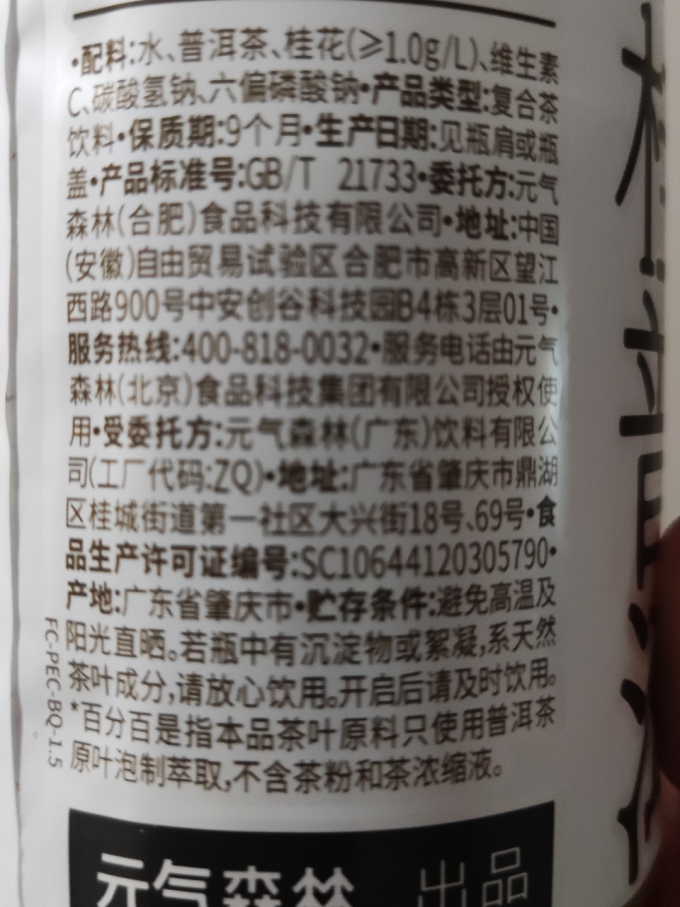 •配料:水、普洱茶、桂花(≥1.0g/L)、维生素
C、碳酸氢钠、六偏磷酸钠•产品类型:复合茶
饮料•保质期:9个月•生产日期:见瓶肩或瓶
盖•产品标准号:GB/T 21733•委托方:元气
森林(合肥)食品科技有限公司•地址:中国
(安徽)自由贸易试验区合肥市高新区望江
西路900号中安创谷科技园B4栋3层01号•
服务热线:400-818-0032•服务电话由元气
森林(北京)食品科技集团有限公司授权使
用•受委托方:元气森林(广东)饮料有限公
司(工厂代码:ZQ)•地址:广东省肇庆市鼎湖
区桂城街道第一社区大兴街18号、69号•食
品生产许可证编号:SC10644120305790•
产地:广东省肇庆市•贮存条件:避免高温及
阳光直晒。若瓶中有沉淀物或絮凝,系天然
茶叶成分,请放心饮用。开启后请及时饮用。
*百分百是指本品茶叶原料只使用普洱茶
原叶泡制萃取,不含茶粉和茶浓缩液。
FC-PEC-BQ-1.5
元气森林 出品